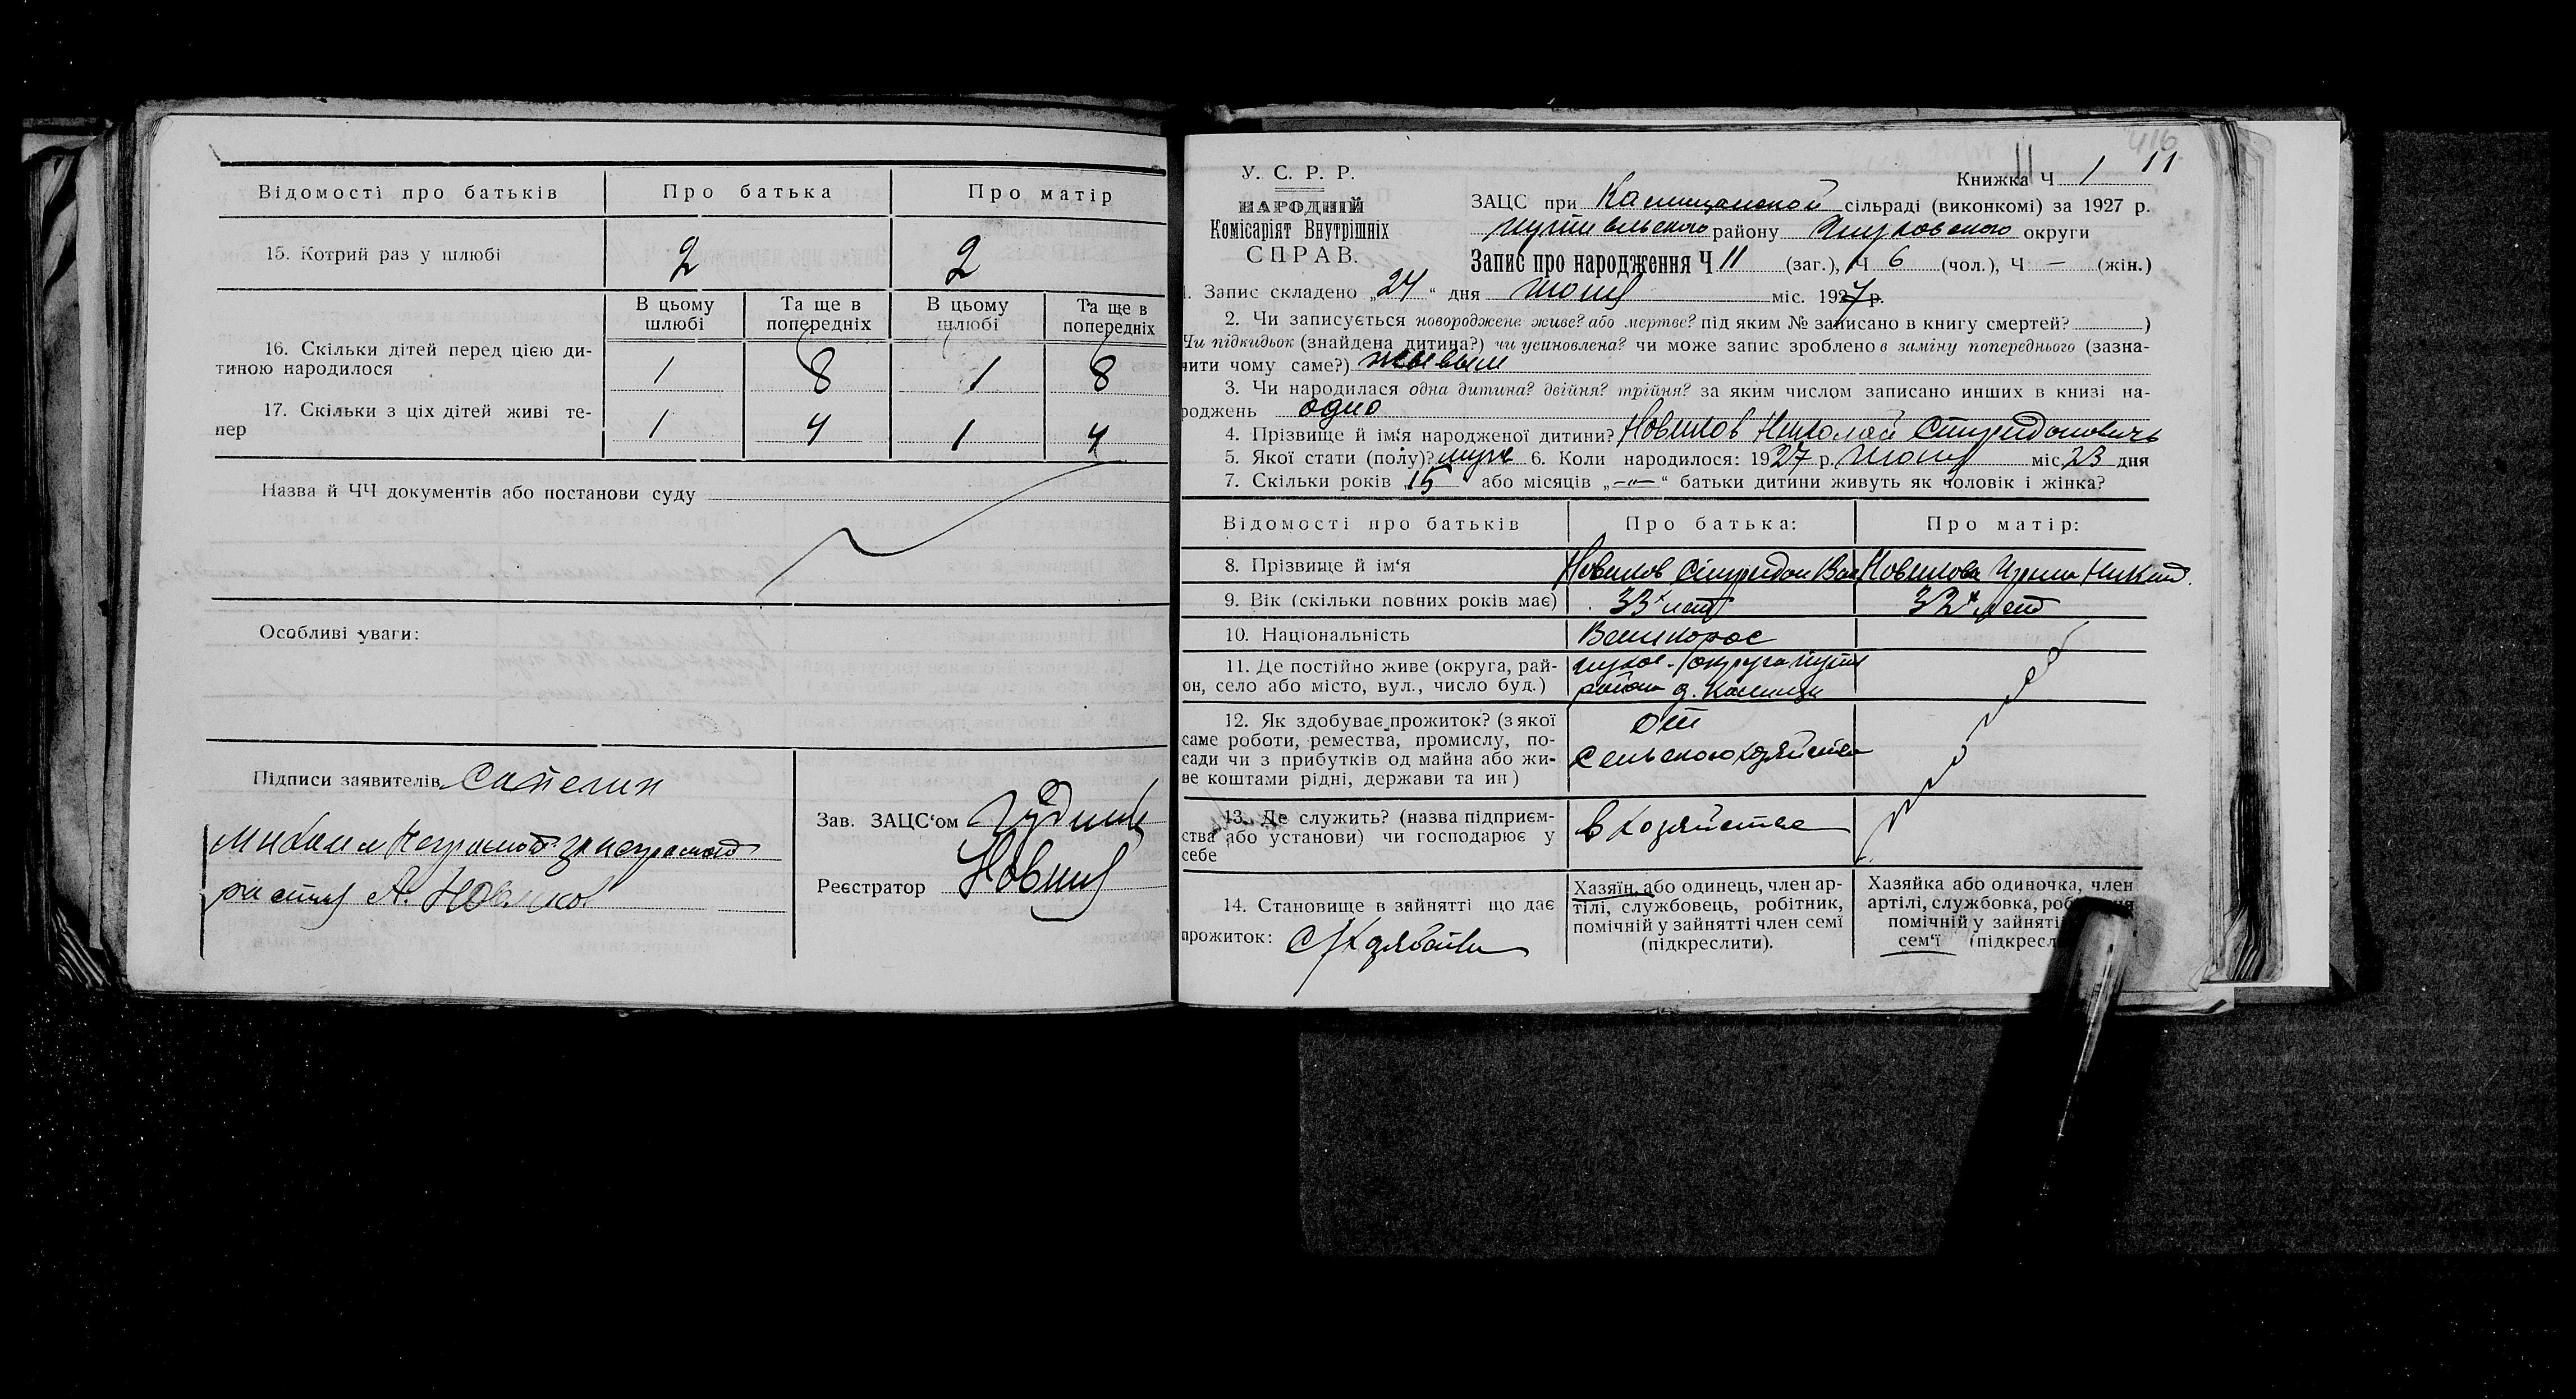 Відомості про батьків Про батька Про матір
15. Котрий раз у шлюбі 2 2
В цьому шлюбі Та ще в попередніх В цьому шлюбі Та ще в попередніх
16. Скільки дітей перед цією ди-
тиною народилося 1 8 1 8
17. Скільки з ціх дітей живі те-
пер 1 4 1 4
Назва й ЧЧ документів або постанови суду
Особливі уваги:
Підписи заявителів
А. Новиков
Зав. ЗАЦС‘ом
Реєстратор Новик
416
У. С. Р. Р.
НАРОДНІЙ
Комісаріят Внутрішніх
СПРАВ.
Книжка Ч 1 11
11
ЗАЦС при сільраді (виконкомі) за 1927 р.
Путивльского району Глуховского округи
Запис про народження Ч 11 (заг.), Ч 6 (чол.), Ч — (жін.)
1. Запис складено „24“ дня міс. 1927 р.
2. Чи записується новороджене живе? або мертве? під яким № записано в книгу смертей? )
Чи підкидьок (знайдена дитина?) чи усиновлена? чи може запис зроблено в заміну попереднього (зазна-
чити чому саме?) живым
3. Чи народилася одна дитина? двійня? трійня? за яким числом записано инших в книзі на-
роджень одно
4. Прізвище й ім‘я народженої дитини? Новиков Николай Спиридоновичь
5. Якої стати (полу)? муж 6. Коли народилося: 1927 р. міс 23 дня
7. Скільки років „15“ або місяців „—“ батьки дитини живуть як чоловік і жінка?
Відомості про батьків Про батька: Про матір:
8. Прізвище й ім‘я Новиков Спиридон Вас Новикова Ирина Никит.
9. Вік (скільки повних років має) 33х лет 32х лет
10. Національність Великорос
11. Де постійно живе (округа, рай-
он, село або місто, вул., число буд.) Глухов. округа Пути район д.
12. Як здобуває прожиток? (з якої
саме роботи, ремества, промислу, по-
сади чи з прибутків од майна або жи-
ве коштами рідні, держави та ин) от сельского хозяйства
13. Де служить? (назва підприєм-
ства або установи) чи господарює у
себе в хозяйстве
14. Становище в зайнятті що дає
прожиток:
Хазяїн, або одинець, член ар-
тілі, службовець, робітник,
помічній у зайнятті член семї
(підкреслити).
Хазяйка або одиночка, член
артілі, службовка,
помічній у
сем‘ї